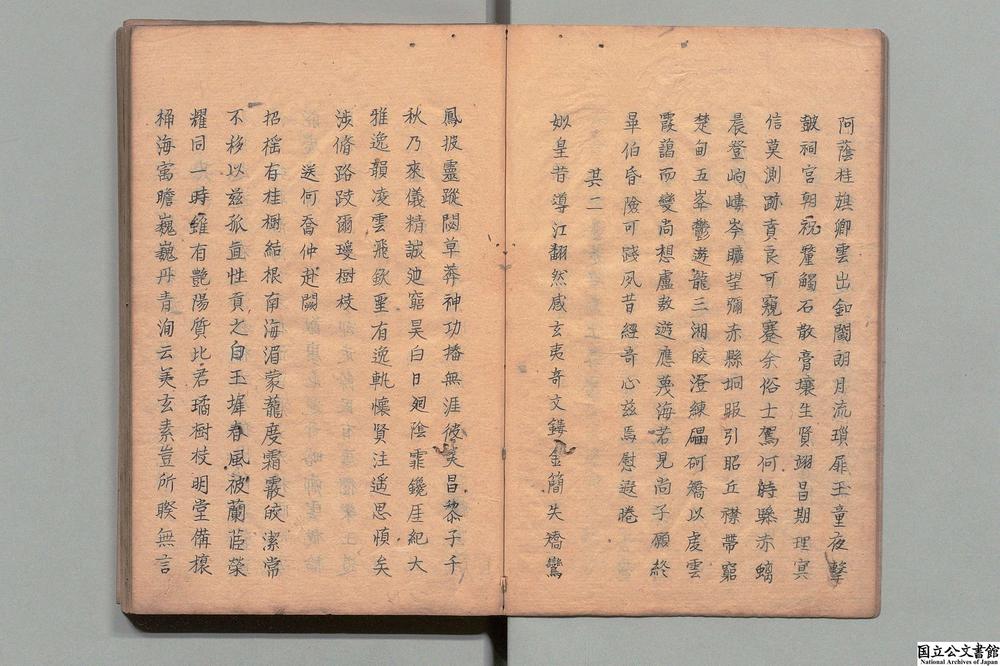 阿蔭桂旗卿雲出釦闥朗月流瓆扉玉童夜擊
皷祠宮朝祝釐觸石散膏壤生賢翊昌期理冥
信莫測跡賁良可窺蹇余俗士駕何時驂赤螭
晨登岣嶁岑曠望彌赤縣坰服引昭丘襟帶窮
楚甸五峯鬱遊龍三湘皎澄練礧砢矯以虔雲
霞藹而變尚想盧敖遊應蔑海若見尚子願終
畢伯昏險可踐夙昔經奇心兹焉慰遐睠
其二
姒皇昔導江翻然感玄夷奇文鏤金簡失矯鸞
鳳披靈蹤閟草莽神功播無涯彼美昌黎子千
秋乃來儀精誠迪窮昊白日廻陰霏鑱厓紀大
雅逸韻凌雲飛欽聖有逸軌懷賢注遥思慎矣
涉脩路跂爾瓊樹枝
送何喬仲赴闕
招榣有桂樹結根南海湄蒙蘢度霜霰皎潔常
不移以兹孤直性貢之白玉墀春風被蘭茝榮
耀同一時雖有艷陽質比君璚樹枝明堂備榱
桷海寓瞻巍巍丹青洵云美玄素豈所睽無言
国立公文書館
National Archives of Japan